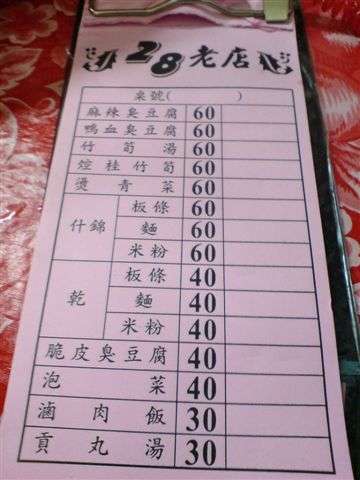 28老店
桌號( )
麻辣臭豆腐 60
鴨血臭豆腐 60
竹筍湯 60
焢桂竹筍 60
燙青菜 60
什錦 板條 60
麵 60
米粉 60
乾 板條 40
麵 40
米粉 40
脆皮臭豆腐 40
泡菜 40
滷肉飯 30
貢丸湯 30